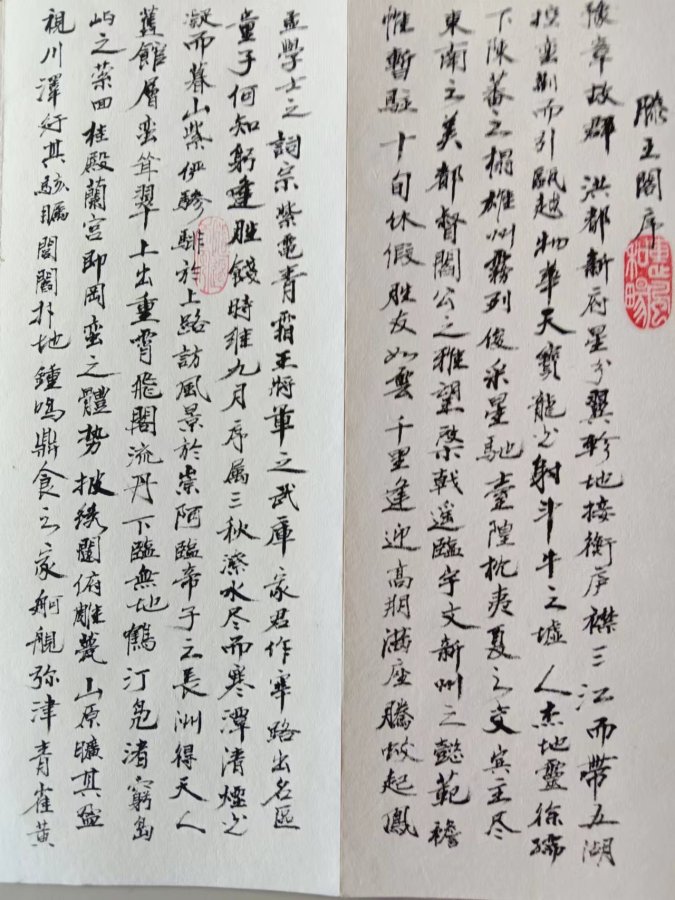 滕王閣序
惠風和暢
豫章故郡洪都新府星分翼軫地接衡庐襟三江而帶五湖
控蛮荆而引甌越物華天寶龍光射斗牛之墟人杰地靈徐孺
下陳蕃之榻雄州霧列俊采星馳臺隍枕夷夏之交賓主尽
東南之美都督閻公之雅望棨戟遥臨宇文新州之懿範襜
帷暫駐十旬休假胜友如雲千里逢迎高朋滿座騰蛟起鳳
孟學士之詞宗紫電青霜王將軍之武庫家君作宰路出名区
童子何知躬逢胜餞時維九月序属三秋潦水尽而寒潭清煙光
凝而暮山紫俨驂騑於上路訪風景於崇阿臨帝子之長洲得天人
舊館層峦耸翠上出重霄飛閣流丹下臨無地鶴汀凫渚窮島
屿之萦回桂殿蘭宫即岡峦之體势披绣闥俯雕甍山原曠其盈
視川澤纡其駭瞩閭閻扑地鍾鳴鼎食之家舸艦弥津青雀黄